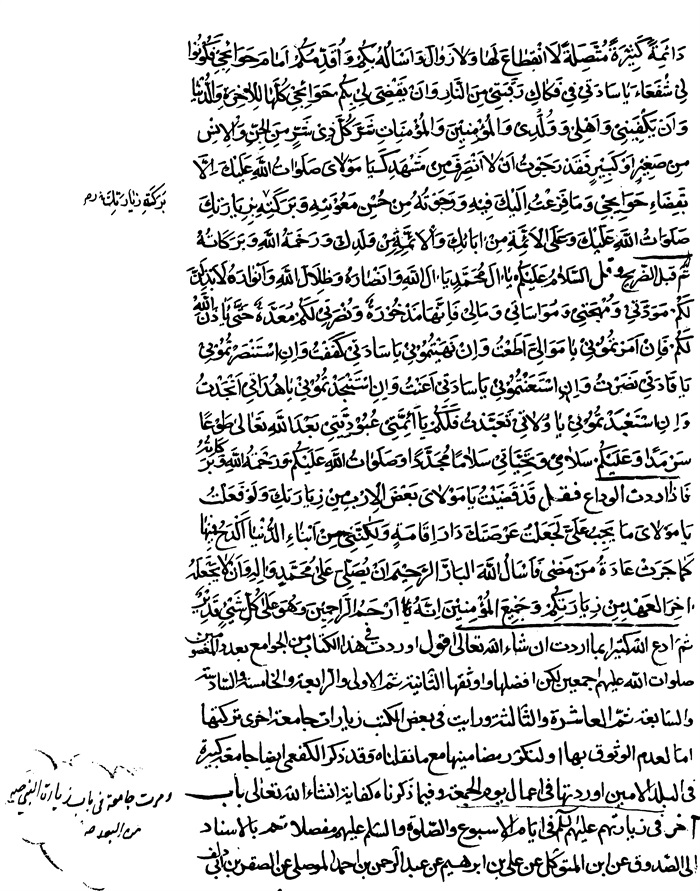 دَائِمَةً كَثِيرَةً مُتَّصِلَةً لَا انْقِطَاعَ لَهَا وَلَا زَوَالَ وَاَسْأَلُهُ بِكُمْ وَاُقَدِّمُكُمْ اَمَامَ حَوَائِجِي فَكُونُوا
لِي شُفَعَاءَ يَا سَادَتِي فِي فَكَاكِ رَقَبَتِي مِنَ النَّارِ وَاَنْ يَقْضِيَ لِي بِكُمْ حَوَائِجِي كُلَّهَا لِلْاٰخِرَةِ وَالدُّنْيَا
وَاَنْ يَكْفِيَنِي وَاَهْلِي وَوُلْدِي وَالْمُؤْمِنِينَ وَالْمُؤْمِنَاتِ شَرَّ كُلِّ ذِي شَرٍّ مِنَ الْجِنِّ وَالْاِنْسِ
مِنْ صَغِيرٍ اَوْ كَبِيرٍ فَقَدْ رَجَوْتُ اَنْ لَا اَنْصَرِفَ مِنْ مَشْهَدِكَ يَا مَوْلَايَ صَلَوَاتُ اللهِ عَلَيْكَ اِلَّا
بِقَضَاءِ حَوَائِجِي وَمَا فَزِعْتُ اِلَيْكَ فِيهِ وَرَجَوْتُهُ مِنْ حُسْنِ مَعُونَتِهِ وَبَرَكَتِهِ بِزِيَارَتِكَ
بَرَكَةِ زِيَارَتِكَ
صَلَوَاتُ اللهِ عَلَيْكَ وَعَلَى الْاَئِمَّةِ مِنْ اٰبَائِكَ وَالْاَئِمَّةِ مِنْ وَلَدِكَ وَرَحْمَةُ اللهِ وَبَرَكَاتُهُ
ثُمَّ قَبِّلِ الضَّرِيحَ وَقُلْ السَّلَامُ عَلَيْكُمْ يَا اٰلَ مُحَمَّدٍ يَا اٰلَ اللهِ وَاَنْصَارَهُ وَظِلَالَ اللهِ وَاَنْوَارَهُ لَاَبْذُلَنَّ
لَكُمْ مَوَدَّتِي وَمُهْجَتِي وَمُوَاسَاتِي وَمَالِي فَاِنَّهَا مَذْخُورَةٌ وَنُصْرَتِي لَكُمْ مُعَدَّةٌ حَتَّى يَأْذَنَ اللهُ
لَكُمْ فَاِنْ اَمَرْتُمُونِي يَا مَوَالِيَّ اَطَعْتُ وَاِنْ نَهَيْتُمُونِي يَا سَادَتِي كَفَفْتُ وَاِنِ اسْتَنْصَرْتُمُونِي
يَا قَادَتِي نَصَرْتُ وَاِنِ اسْتَعَنْتُمُونِي يَا سَادَتِي اَعَنْتُ وَاِنِ اسْتَنْجَدْتُمُونِي يَا هُدَاتِي اَنْجَدْتُ
وَاِنِ اسْتَعْبَدْتُمُونِي يَا وُلَاتِي تَعَبَّدْتُ فَلَكُمْ يَا اَئِمَّتِي عُبُودِيَّتِي بَعْدَ اللهِ تَعَالٰى طَوْعًا
سَرْمَدًا وَعَلَيْكُمْ سَلَامِي وَتَحِيَّاتِي سَلَامًا مُجَدَّدًا وَصَلَوَاتُ اللهِ عَلَيْكُمْ وَرَحْمَةُ اللهِ وَبَرَكَاتُهُ
فاذا اردت الوداع فقل قَدْ قَضَيْتُ يَا مَوْلَايَ بَعْضَ الْاِرْبِ مِنْ زِيَارَتِكَ وَلَوْ فَعَلْتُ
يَا مَوْلَايَ مَا يَجِبُ عَلَيَّ لَجَعَلْتُ عَرْصَتَكَ دَارَ اِقَامَةٍ وَلٰكِنَّنِي مِنْ اَبْنَاءِ الدُّنْيَا اَكْدَحُ فِيهَا
كَمَا جَرَتْ عَادَةُ مَنْ مَضٰى فَاَسْأَلُ اللهَ الْبَارَّ الرَّحِيمَ اَنْ يُصَلِّيَ عَلٰى مُحَمَّدٍ وَاٰلِهِ وَاَنْ لَا يَجْعَلَهُ
اٰخِرَ الْعَهْدِ مِنْ زِيَارَتِكُمْ وَجَمِيعَ الْمُؤْمِنِينَ اِنَّهُ يَا اَرْحَمَ الرَّاحِمِينَ وَهُوَ عَلٰى كُلِّ شَيْءٍ قَدِيرٌ
ثم ادع الله كثيرا بما اردت ان شاء الله تعالى اقول اوردت في هذا الكتاب من الجوامع بعدد المعصومين
صلوات الله عليهم اجمعين لكن افضلها واوثقها الثانية ثم الاولى والرابعة والخامسة والسادسة
والسابعة ثم العاشرة والثالثة ورايت في بعض الكتب زيارات جامعة اخرى تركتها
اما لعدم الوثوق بها او لتكرر مضامينها مع ما نقلناه وقد ذكر الكفعمي ايضا جامعة كبيرة
في البلد الامين اوردتها في اعمال يوم الجمعة وفيما ذكرناه كفاية انشاء الله تعالى باب
ومرت جامعة في باب زيارات النبي
من البعد
اخر في زيارتهم عليهم السلم في ايام الاسبوع والصلوة والسلم عليهم مفصلا تم بالاسناد
الى الصدوق عن ابن المتوكل عن علي بن ابرهيم عن عبد الرحمن بن احمد الموصلي عن الصقر بن ابي دلف